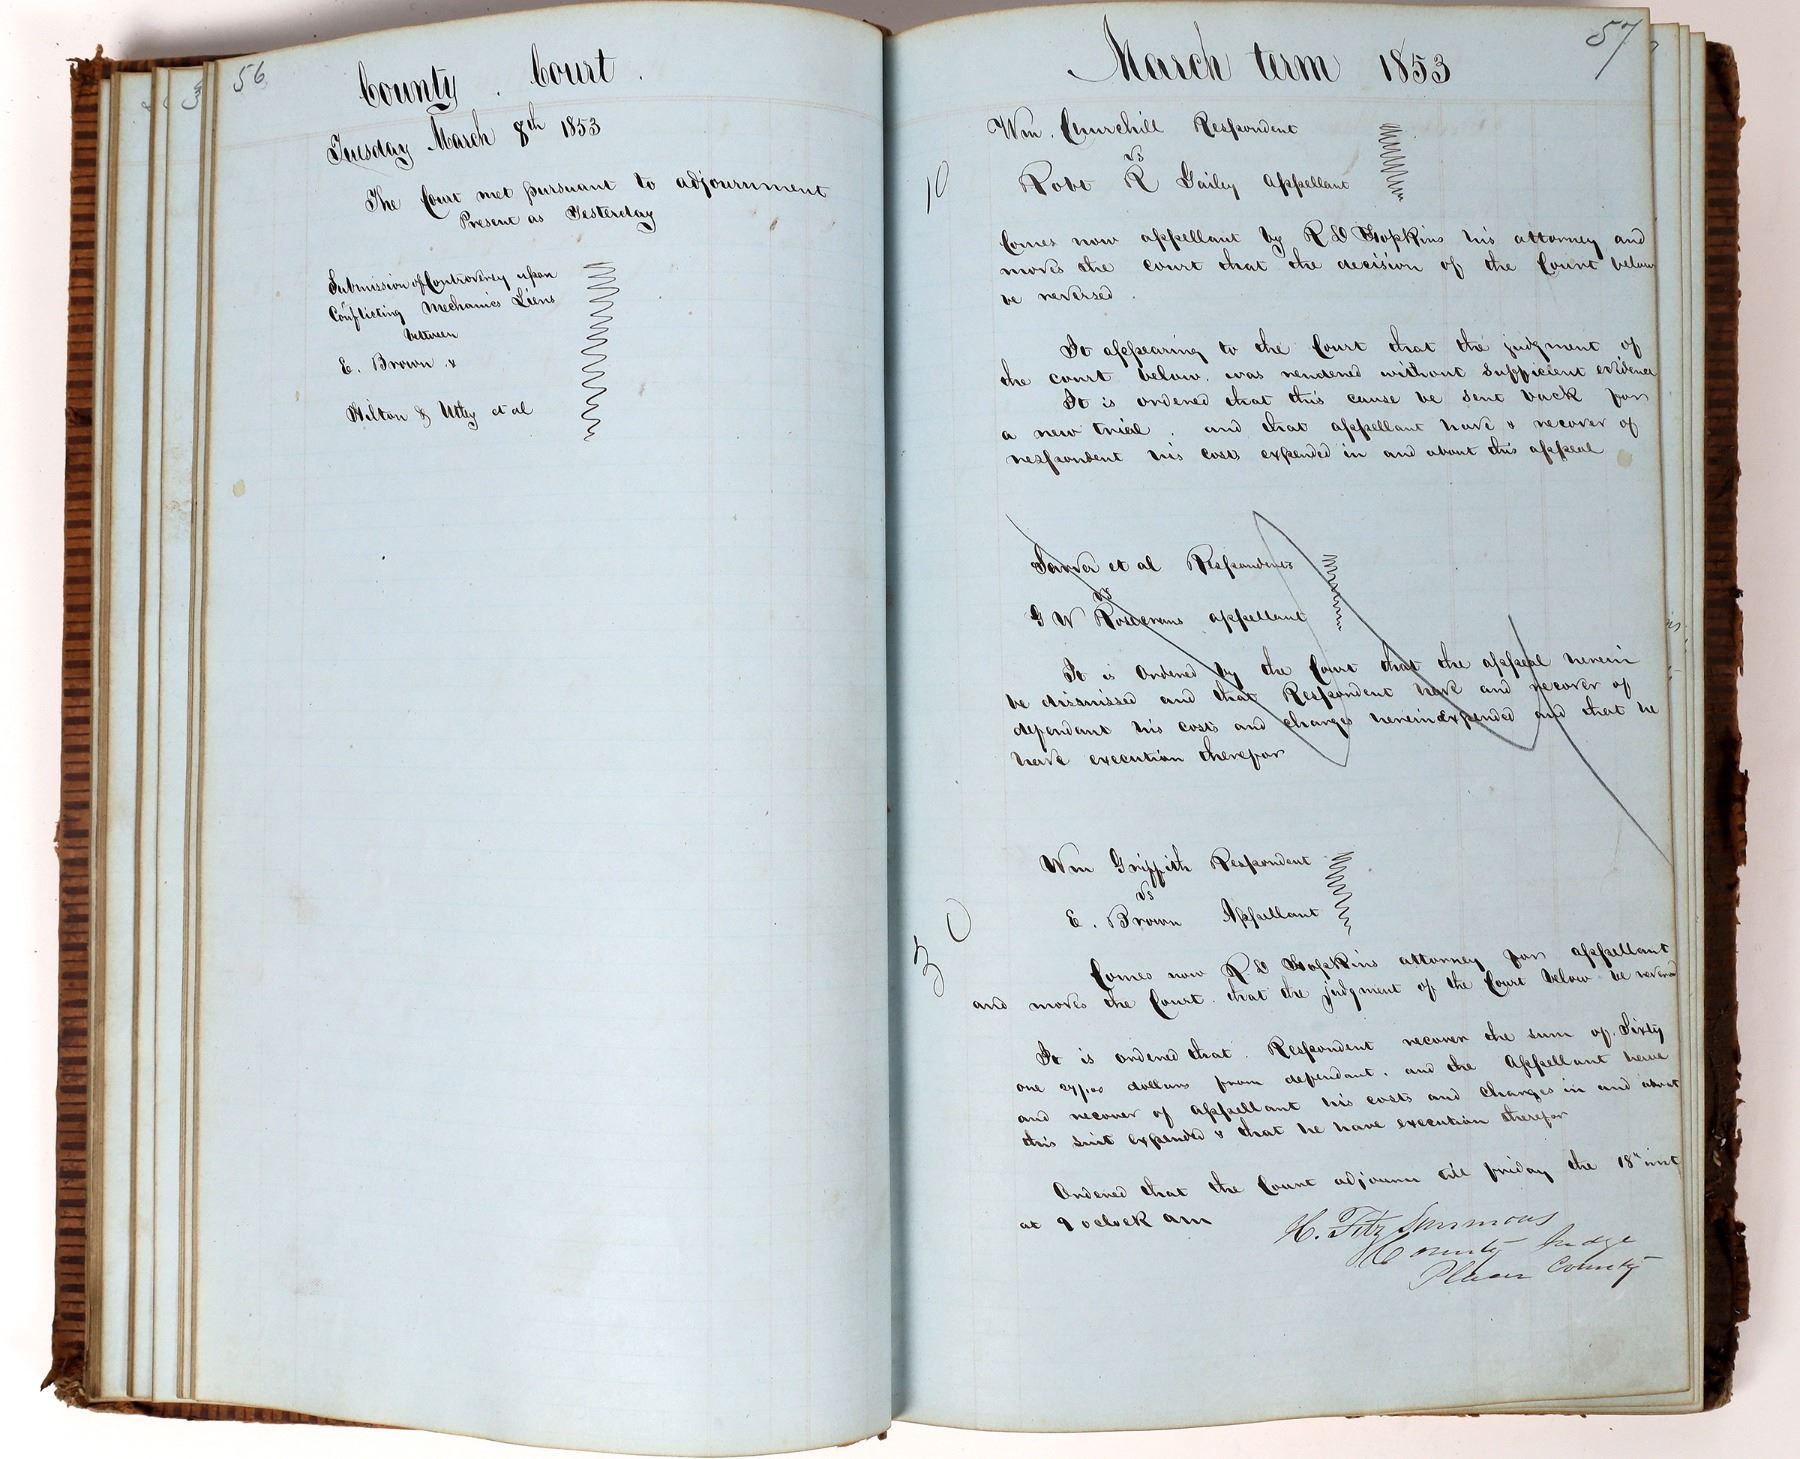 56
County . Court .
Tuesday March 8th 1853
The Court met pursuant to adjournment
Present as Yesterday
Submission of Controversy upon
Conflicting Mechanics Liens
between
E. Brown &
Hilton & Utley et al
57
March term 1853
Wm. Churchill Respondent
vs
10
Robt R Gailey appellant
Comes now appellant by R D Hopkins his attorney and
moves the court that the decision of the Court below
be reversed.
It appearing to the Court that the judgment of
the court below. was rendered without sufficient evidence
It is ordered that this cause be sent back for
a new trial. and that appellant have & recover of
respondent his costs expended in and about this appeal
et al Respondents
vs
G W Rosecrans appellant
It is Ordered by the Court that the appeal herein
be dismissed and that Respondent have and recover of
defendant his costs and charges herein expended and that he
have execution therefor
Wm Griffith Respondent
vs
30
E. Brown Appellant
Comes now R. D Hopkins attorney for appellant
and moves the Court. that the judgment of the Court below be reversed
It is ordered that. Respondent recover the sum of. Sixty
one dollars from defendant. and the Appellant have
and recover of appellant his costs and charges in and about
this suit expended & that he have execution therefor
Ordered that the Court adjourn till friday the 18" inst
at 9 oclock am
H. Fitz Simmons
County Judge
Placer County